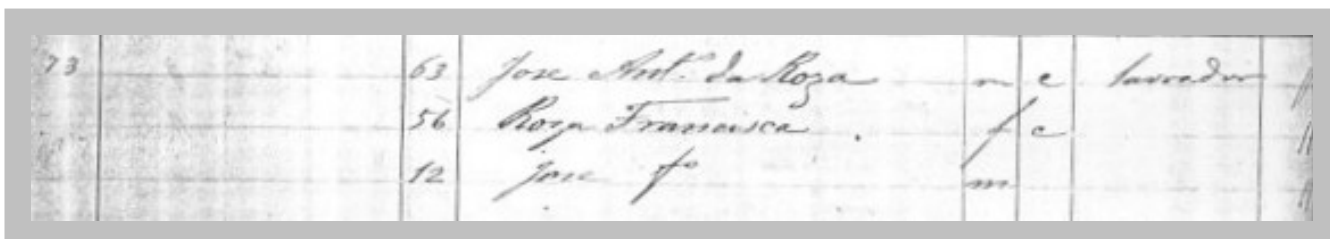 73 63 Jose Ant.º da Roza m c lavrador "
56 Roza Francisca . f c "
12 jose fº m "